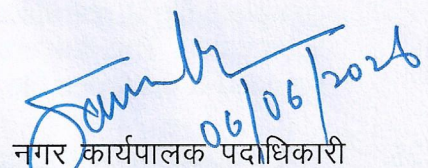 06/06/2026
नगर कार्यपालक पदाधिकारी